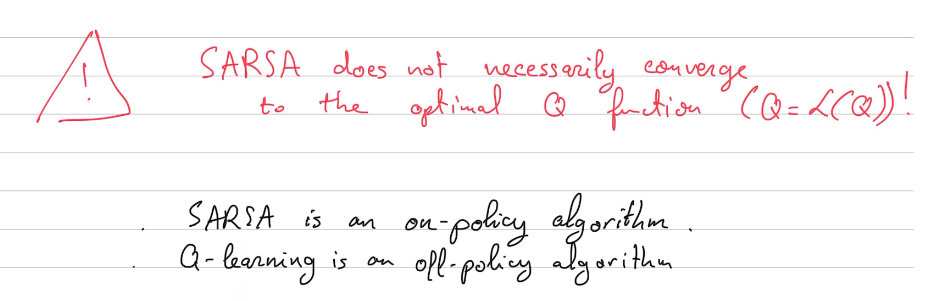 !
SARSA does not necessarily converge
to the optimal Q function (Q = L(Q))!
. SARSA is an on-policy algorithm.
. Q-learning is an off-policy algorithm